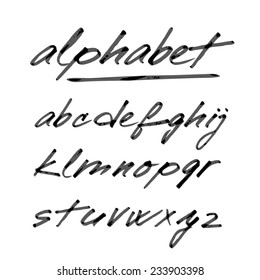 alphabet
abcdefghij
klmnopqr
stuvwxyz
shutterstock.com · 233903398